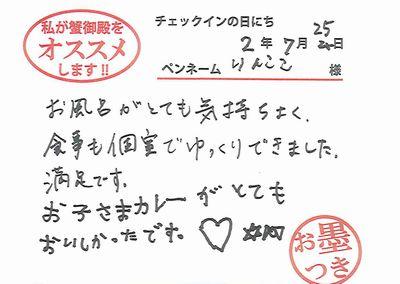 私が蟹御殿を
オススメ
します!!
チェックインの日にち
2年 7月 25日
ペンネーム りんここ 様
お風呂がとても気持ちよく、
食事も個室でゆっくりできました。
満足です。
お子さまカレーがとても
おいしかったです。♡
お墨
つき